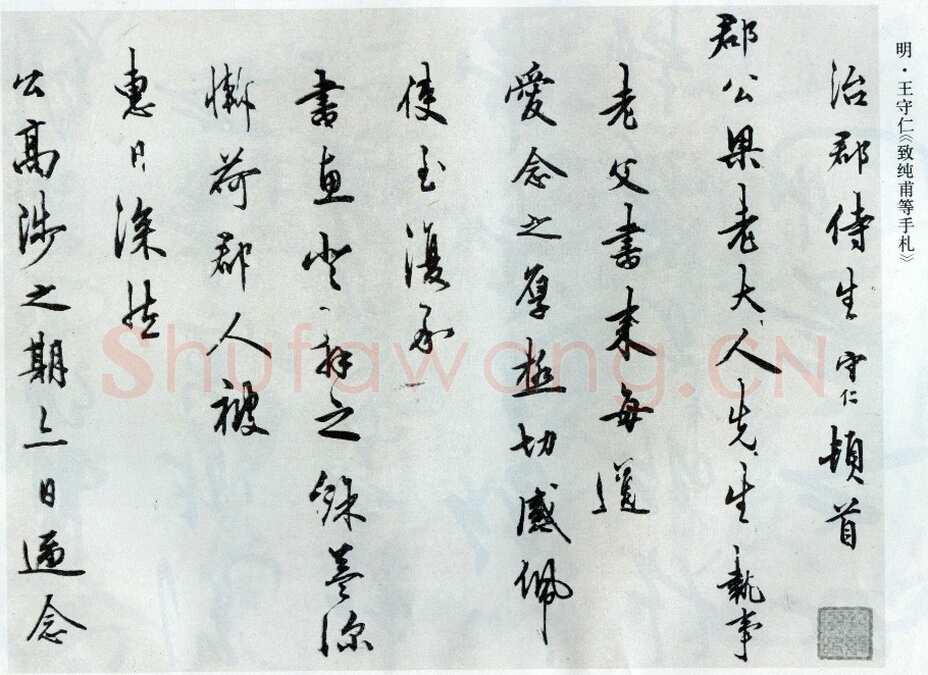 明·王守仁《致纯甫等手札》
治郡侍生守仁頓首
郡公果老大人先生執事
老父書來每道
愛念之厚極切感佩
使至復承
書惠登拜之餘益深
慚荷郡人被
惠日深然
公高陟之期亦日逼念
Shufawang.CN